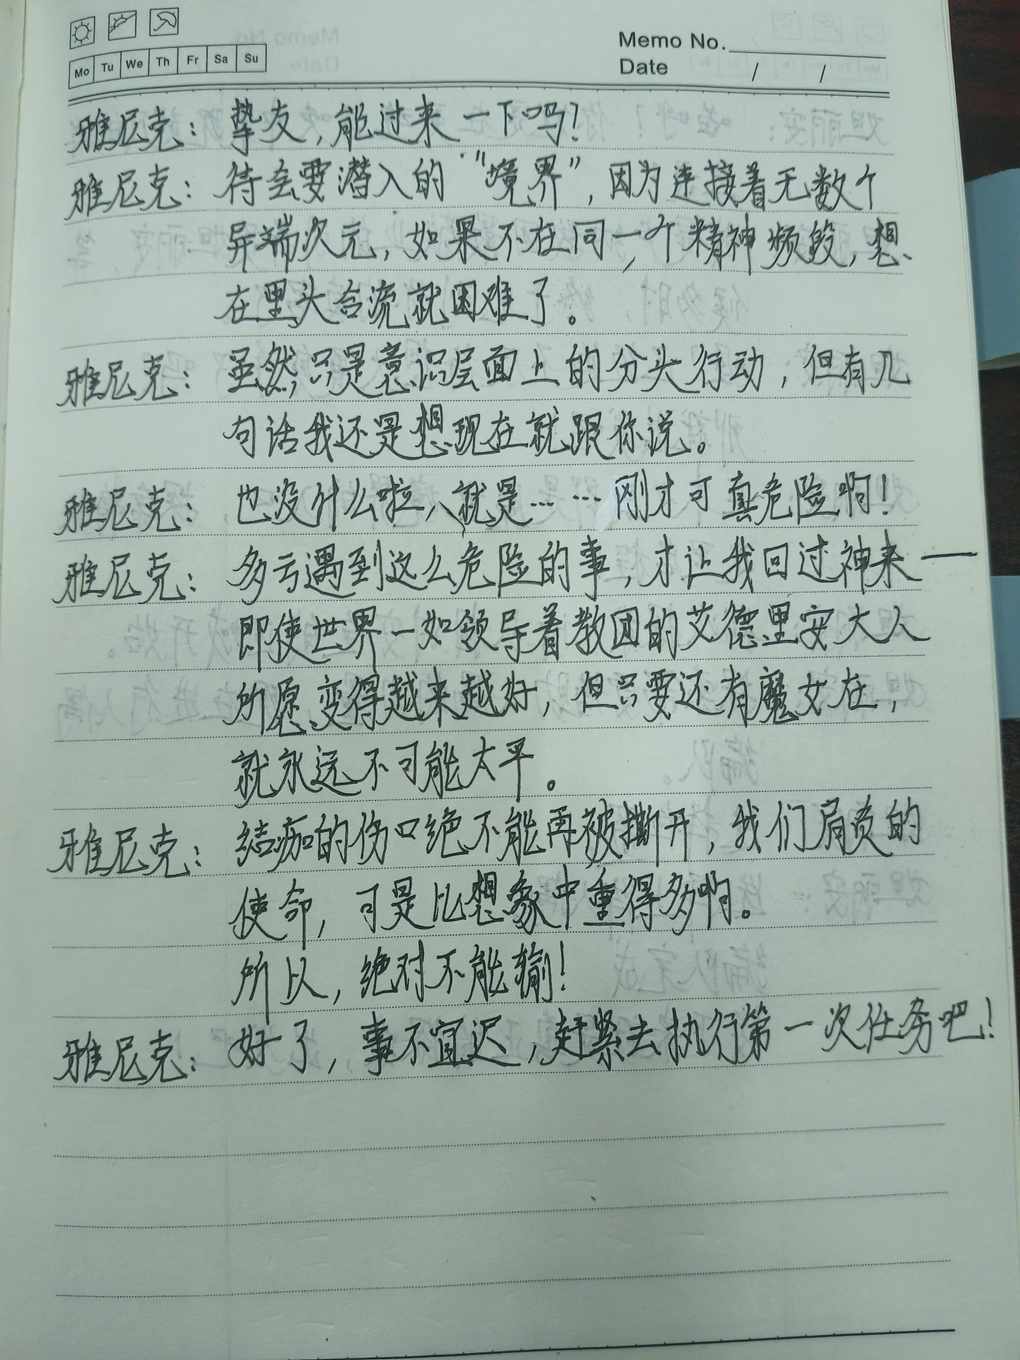 Memo No.
Mo Tu We Th Fr Sa Su
Date / /
雅尼克：挚友，能过来一下吗！
雅尼克：待会要潜入的“境界”，因为连接着无数个
异端次元，如果不在同一个精神频段，想
在里头合流就困难了。
雅尼克：虽然只是意识层面上的分头行动，但有几
句话我还是想现在就跟你说。
雅尼克：也没什么啦，就是……刚才可真危险啊！
雅尼克：多亏遇到这么危险的事，才让我回过神来——
即使世界一如领导着教团的艾德里安大人
所愿变得越来越好，但只要还有魔女在，
就永远不可能太平。
雅尼克：结痂的伤口绝不能再被撕开，我们肩负的
使命，可是比想象中重得多啊。
所以，绝对不能输！
雅尼克：好了，事不宜迟，赶紧去执行第一次任务吧！